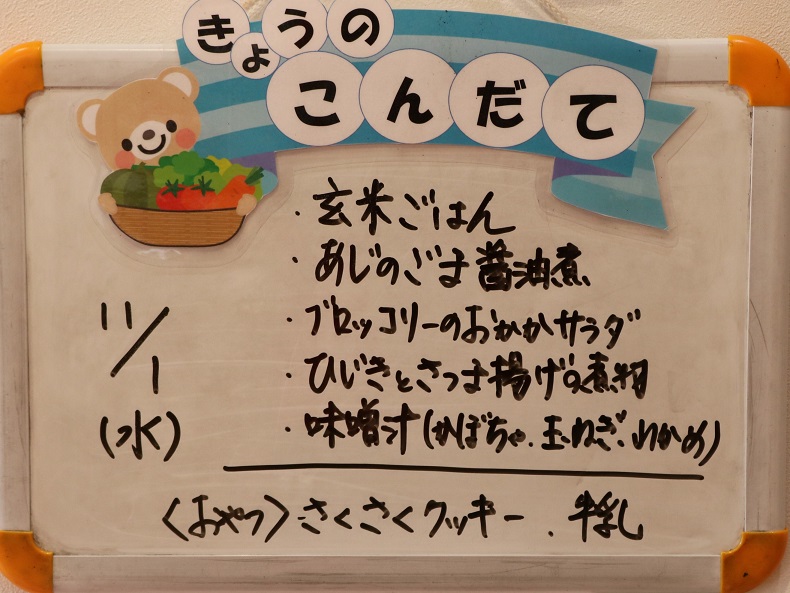 きょうの
こんだて
・玄米ごはん
・あじのごま醤油煮
・ブロッコリーのおかかサラダ
・ひじきとさつま揚げの煮物
・味噌汁(かぼちゃ、玉ねぎ、わかめ)
11/1
(水)
〈おやつ〉さくさくクッキー、牛乳